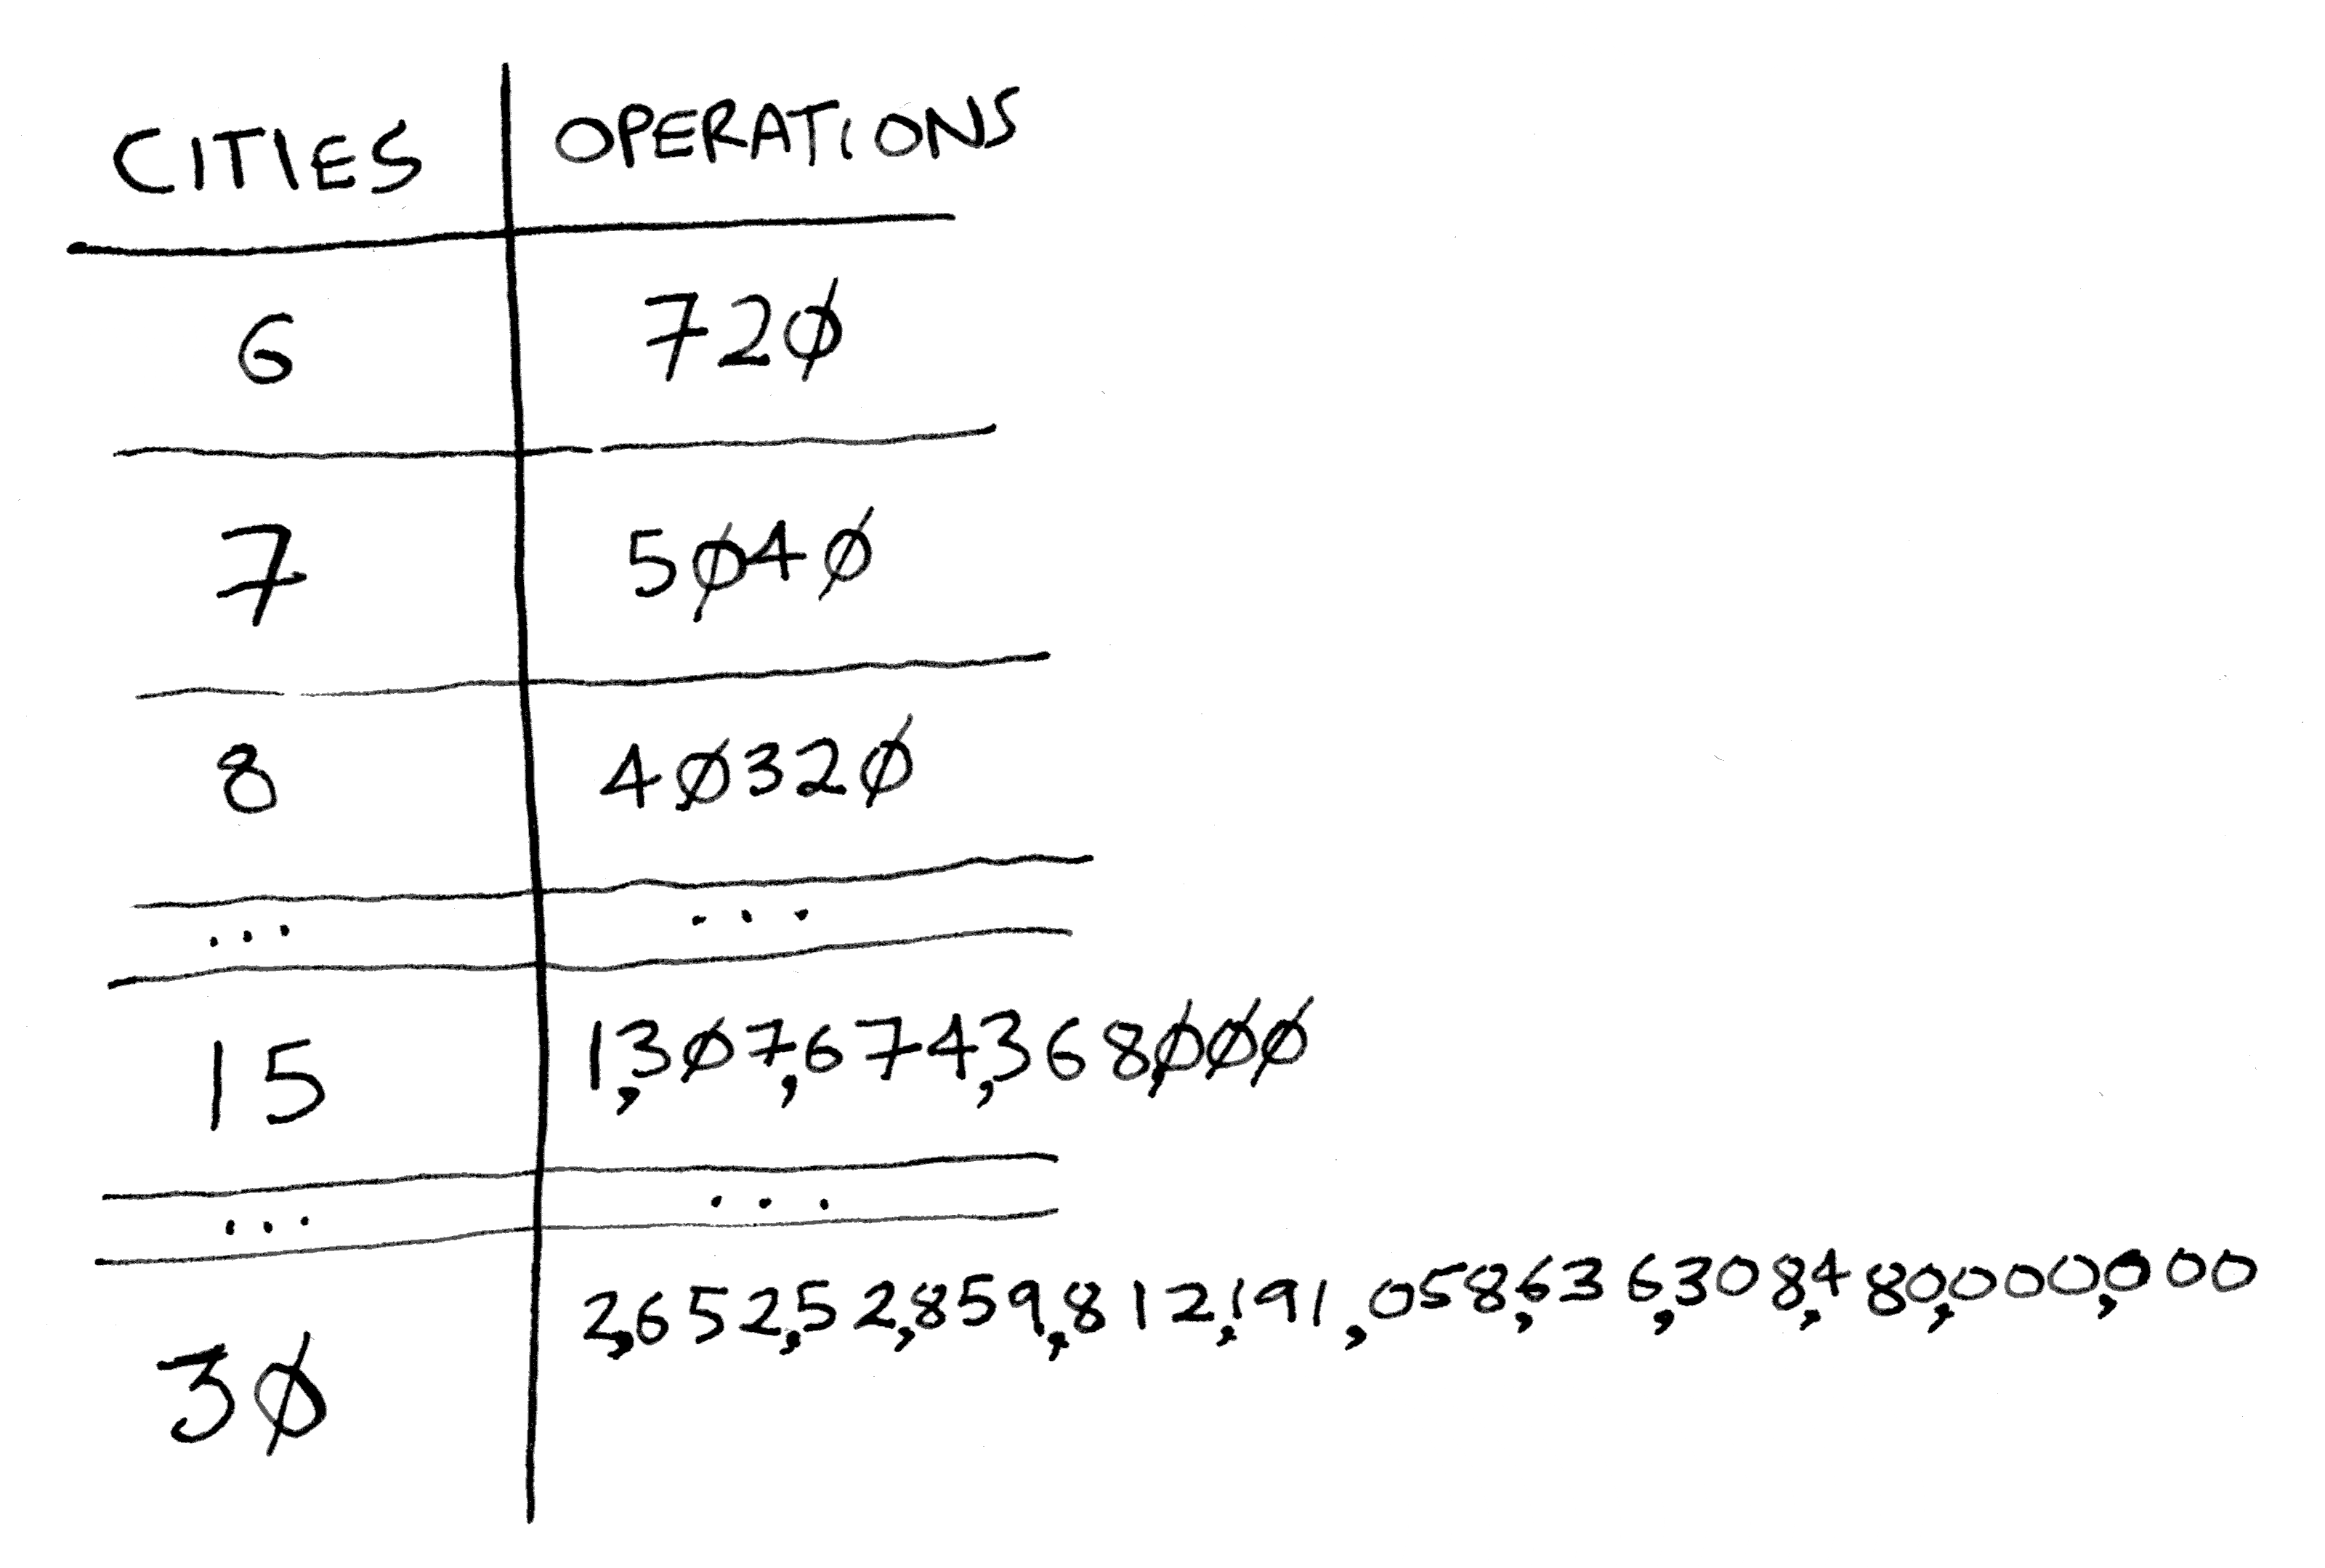 CITIES OPERATIONS
6 720
7 5040
8 40320
... ...
15 1,307,674,368,000
... ...
30 2,652,52,859,812,191,058,636,308,480,000,000